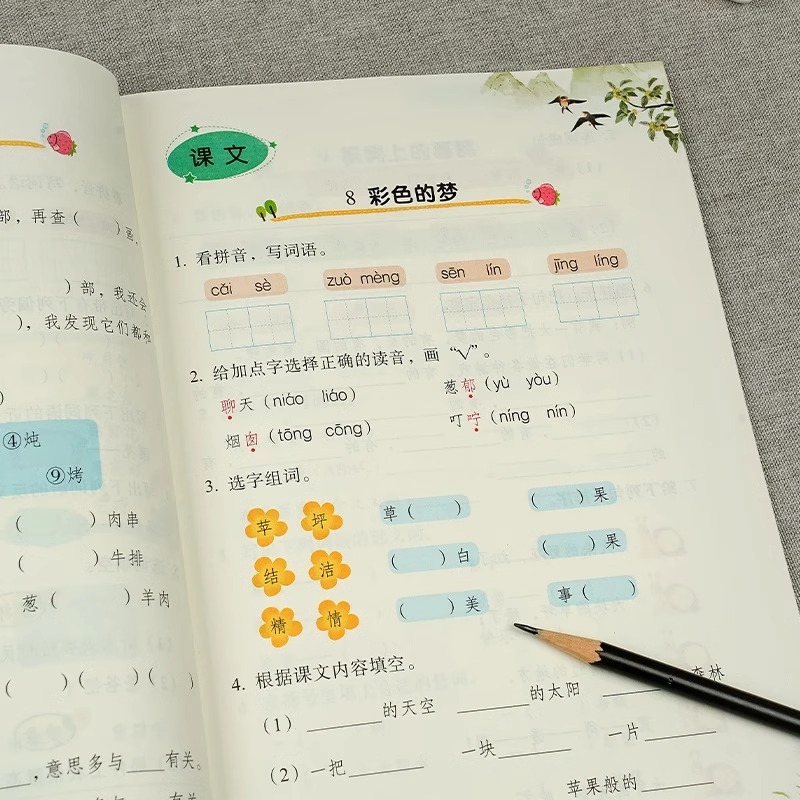 部，再查（ ）画，
）部，我还会
），我发现它们都和
）
④炖
⑨烤
（ ）肉串
（ ）牛排
葱（ ）羊肉
（ ）（ ）（ ）
____，意思多与____有关。
多与____有关。
课文
8 彩色的梦
1. 看拼音，写词语。
cǎi sè zuò mèng sēn lín jīng líng
2. 给加点字选择正确的读音，画“√”。
聊天（niáo liáo） 葱郁（yù yòu）
烟囱（tōng cōng） 叮咛（níng nín）
3. 选字组词。
苹 坪 草（ ） （ ）果
结 洁 （ ）白 （ ）果
精 情 （ ）美 事（ ）
4. 根据课文内容填空。
（1）________的天空 ________的太阳 ________森林
（2）一把________ 一块________ 一片________
苹果般的________